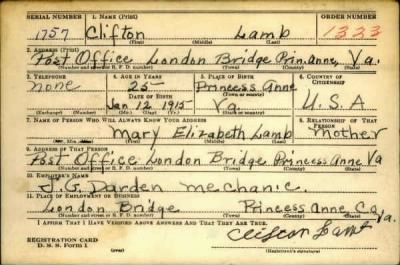 SERIAL NUMBER 1. NAME (Print) ORDER NUMBER
1757 Clifton Lamb 1323
(First) (Middle) (Last)
2. ADDRESS (Print)
Post Office London Bridge Prin. Anne, Va.
(Number and street or R. F. D. number) (Town) (County) (State)
3. TELEPHONE 4. AGE IN YEARS 5. PLACE OF BIRTH 6. COUNTRY OF CITIZENSHIP
none 25 Princess Anne
DATE OF BIRTH (Town or county)
Jan 12 1915 Va. U.S.A
(Exchange) (Number) (Mo.) (Day) (Yr.) (State or country)
7. NAME OF PERSON WHO WILL ALWAYS KNOW YOUR ADDRESS 8. RELATIONSHIP OF THAT PERSON
Mary Elizabeth Lamb mother
(First) (Middle) (Last)
9. ADDRESS OF THAT PERSON
Post Office London Bridge Princess Anne Va
(Number and street or R. F. D. number) (Town) (County) (State)
10. EMPLOYER'S NAME
J.G. Darden mechanic.
11. PLACE OF EMPLOYMENT OR BUSINESS
London Bridge Princess Anne Co, Va.
(Number and street or R. F. D. number) (Town) (County) (State)
I AFFIRM THAT I HAVE VERIFIED ABOVE ANSWERS AND THAT THEY ARE TRUE.
REGISTRATION CARD Clifton Lamb
D. S. S. Form 1 (Registrant's signature)